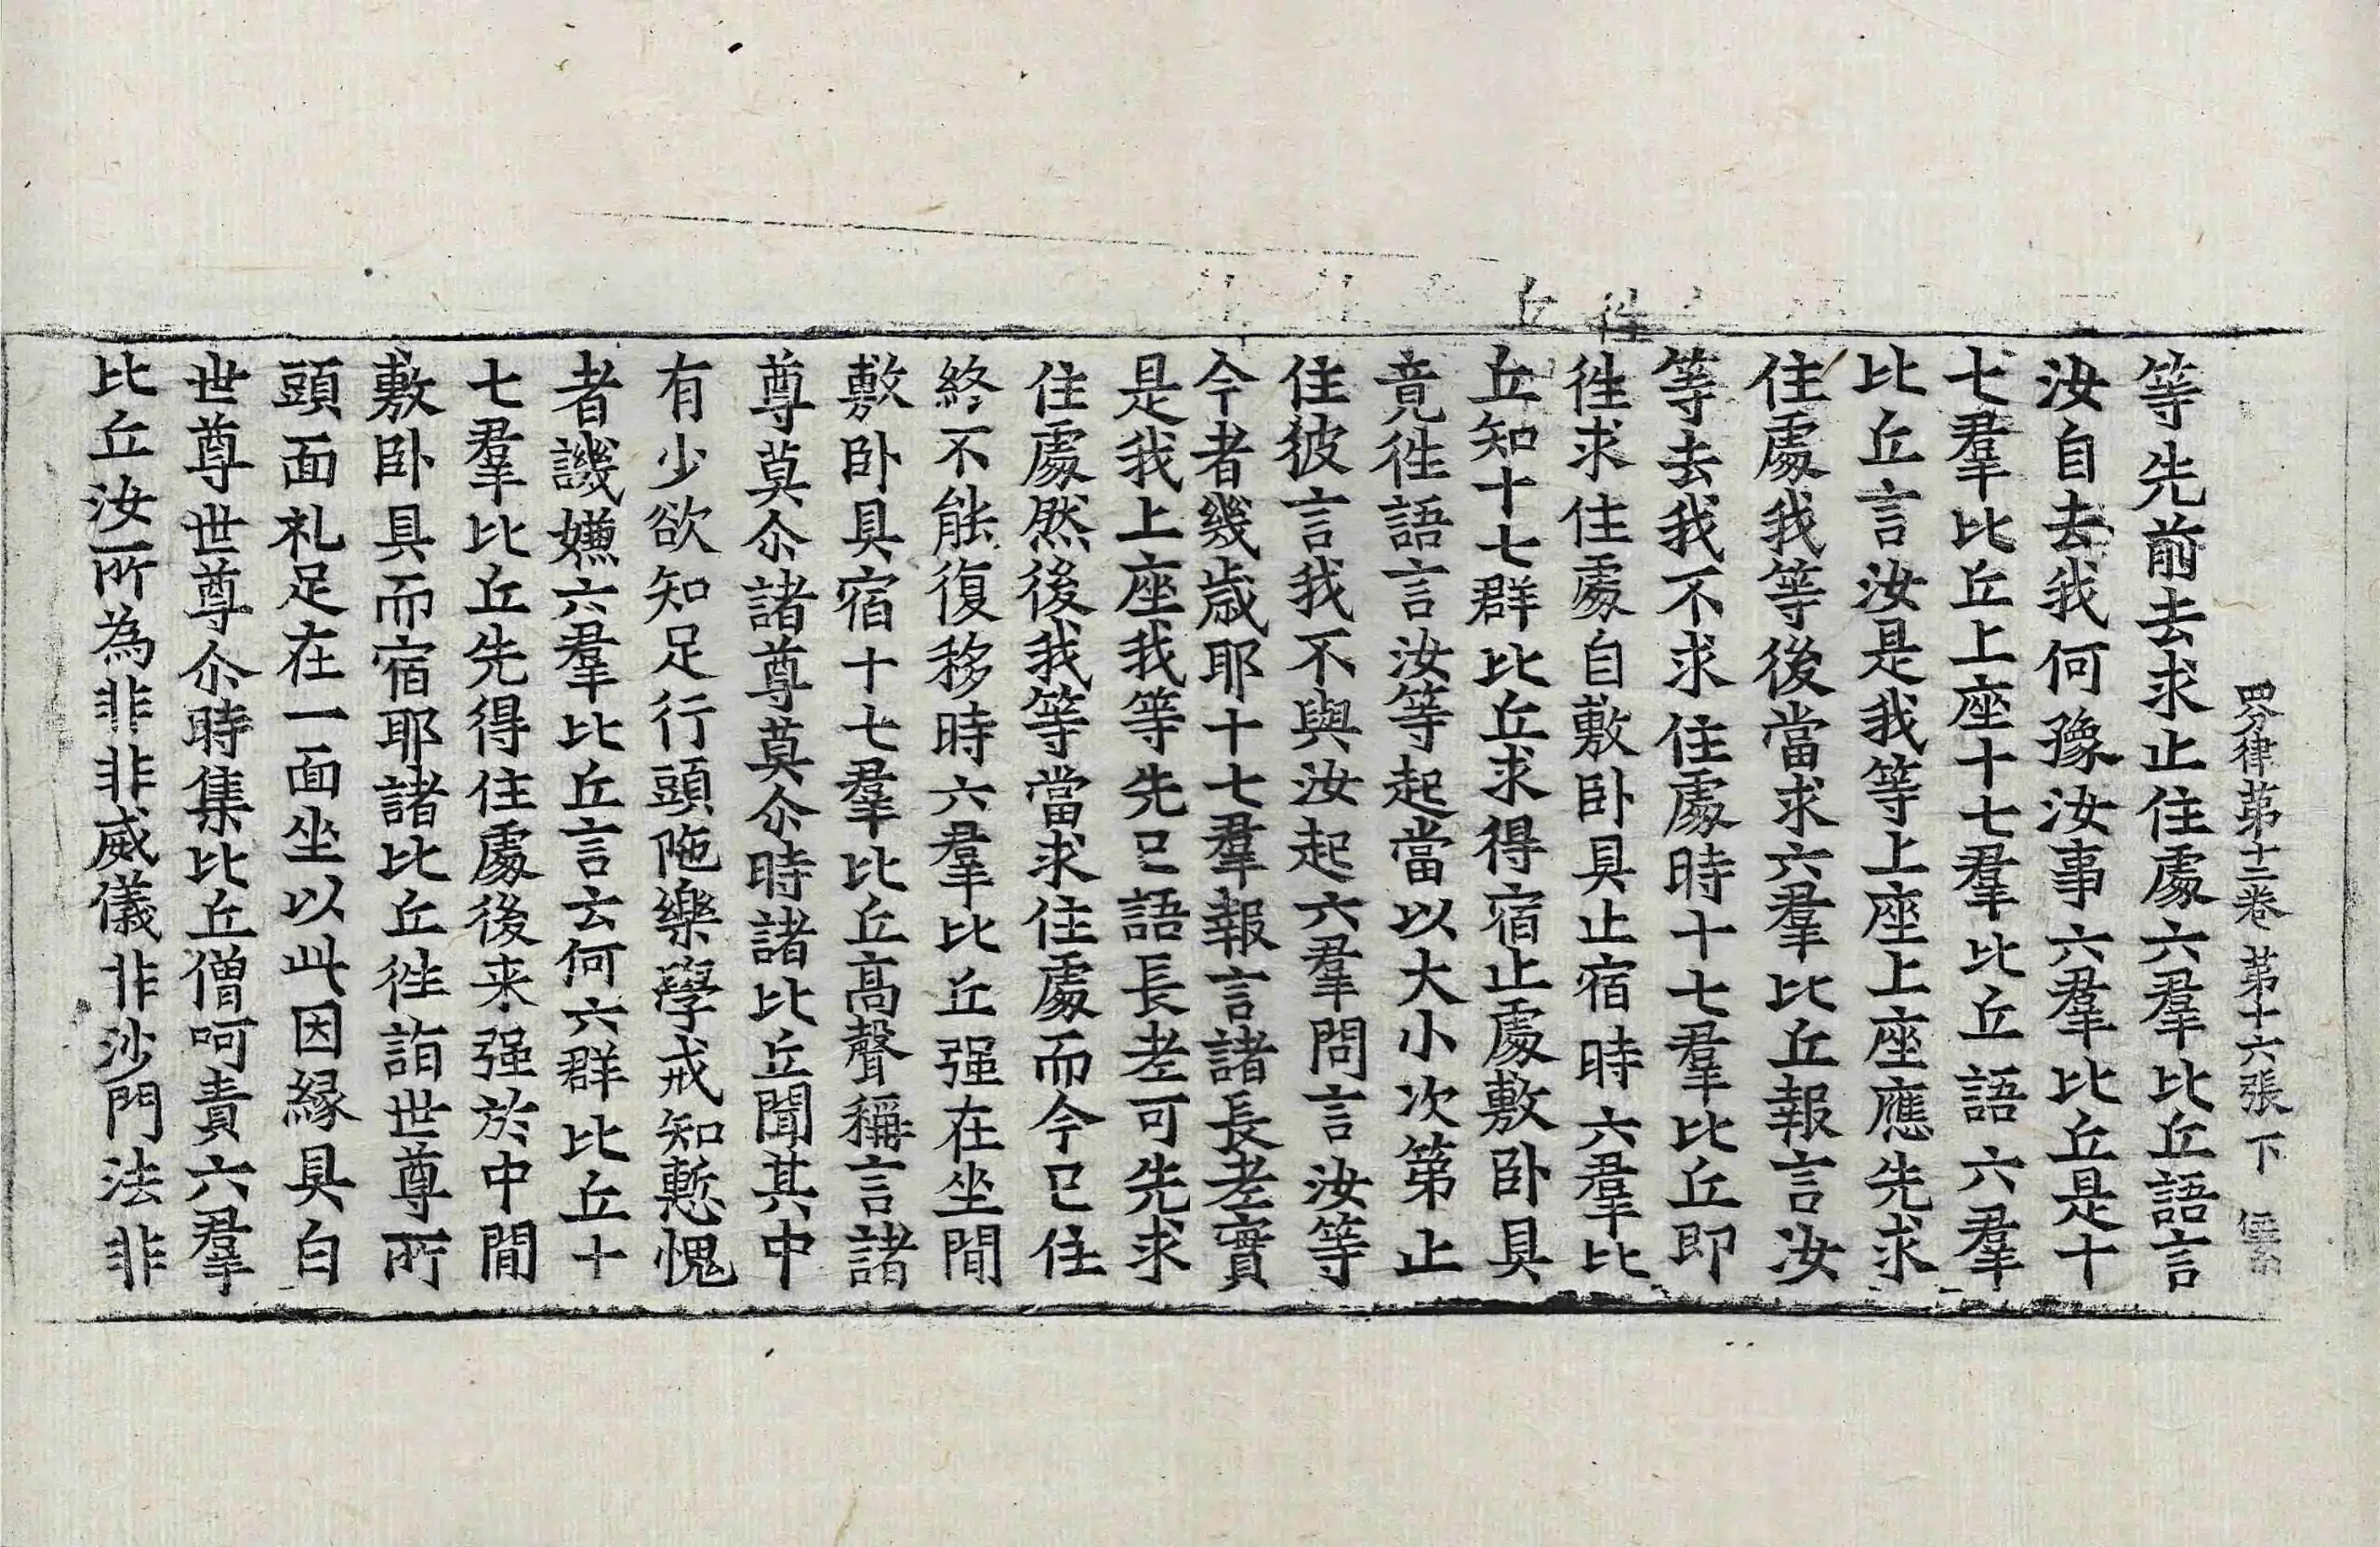 四分律苐十二卷 苐十六張 下
等先前去求止住處六羣比丘語言
汝自去我何豫汝事六羣比丘是十
七羣比丘上座十七羣比丘語六羣
比丘言汝是我等上座上座應先求
住處我等後當求六羣比丘報言汝
等去我不求住處時十七羣比丘即
徃求住處自敷卧具止宿時六羣比
丘知十七群比丘求得宿止處敷卧具
竟徃語言汝等起當以大小次第止
住彼言我不與汝起六羣問言汝等
今者幾歲耶十七羣報言諸長老實
是我上座我等先已語長老可先求
住處然後我等當求住處而今已住
終不能復移時六羣比丘强在坐間
敷卧具宿十七羣比丘高聲稱言諸
尊莫尒諸尊莫尒時諸比丘聞其中
有少欲知足行頭陁樂學戒知慙愧
者譏嫌六羣比丘言云何六群比丘十
七羣比丘先得住處後来强於中間
敷卧具而宿耶諸比丘徃詣世尊所
頭面礼足在一面坐以此因緣具白
世尊世尊尒時集比丘僧呵責六羣
比丘汝所為非非威儀非沙門法非
徃
丘